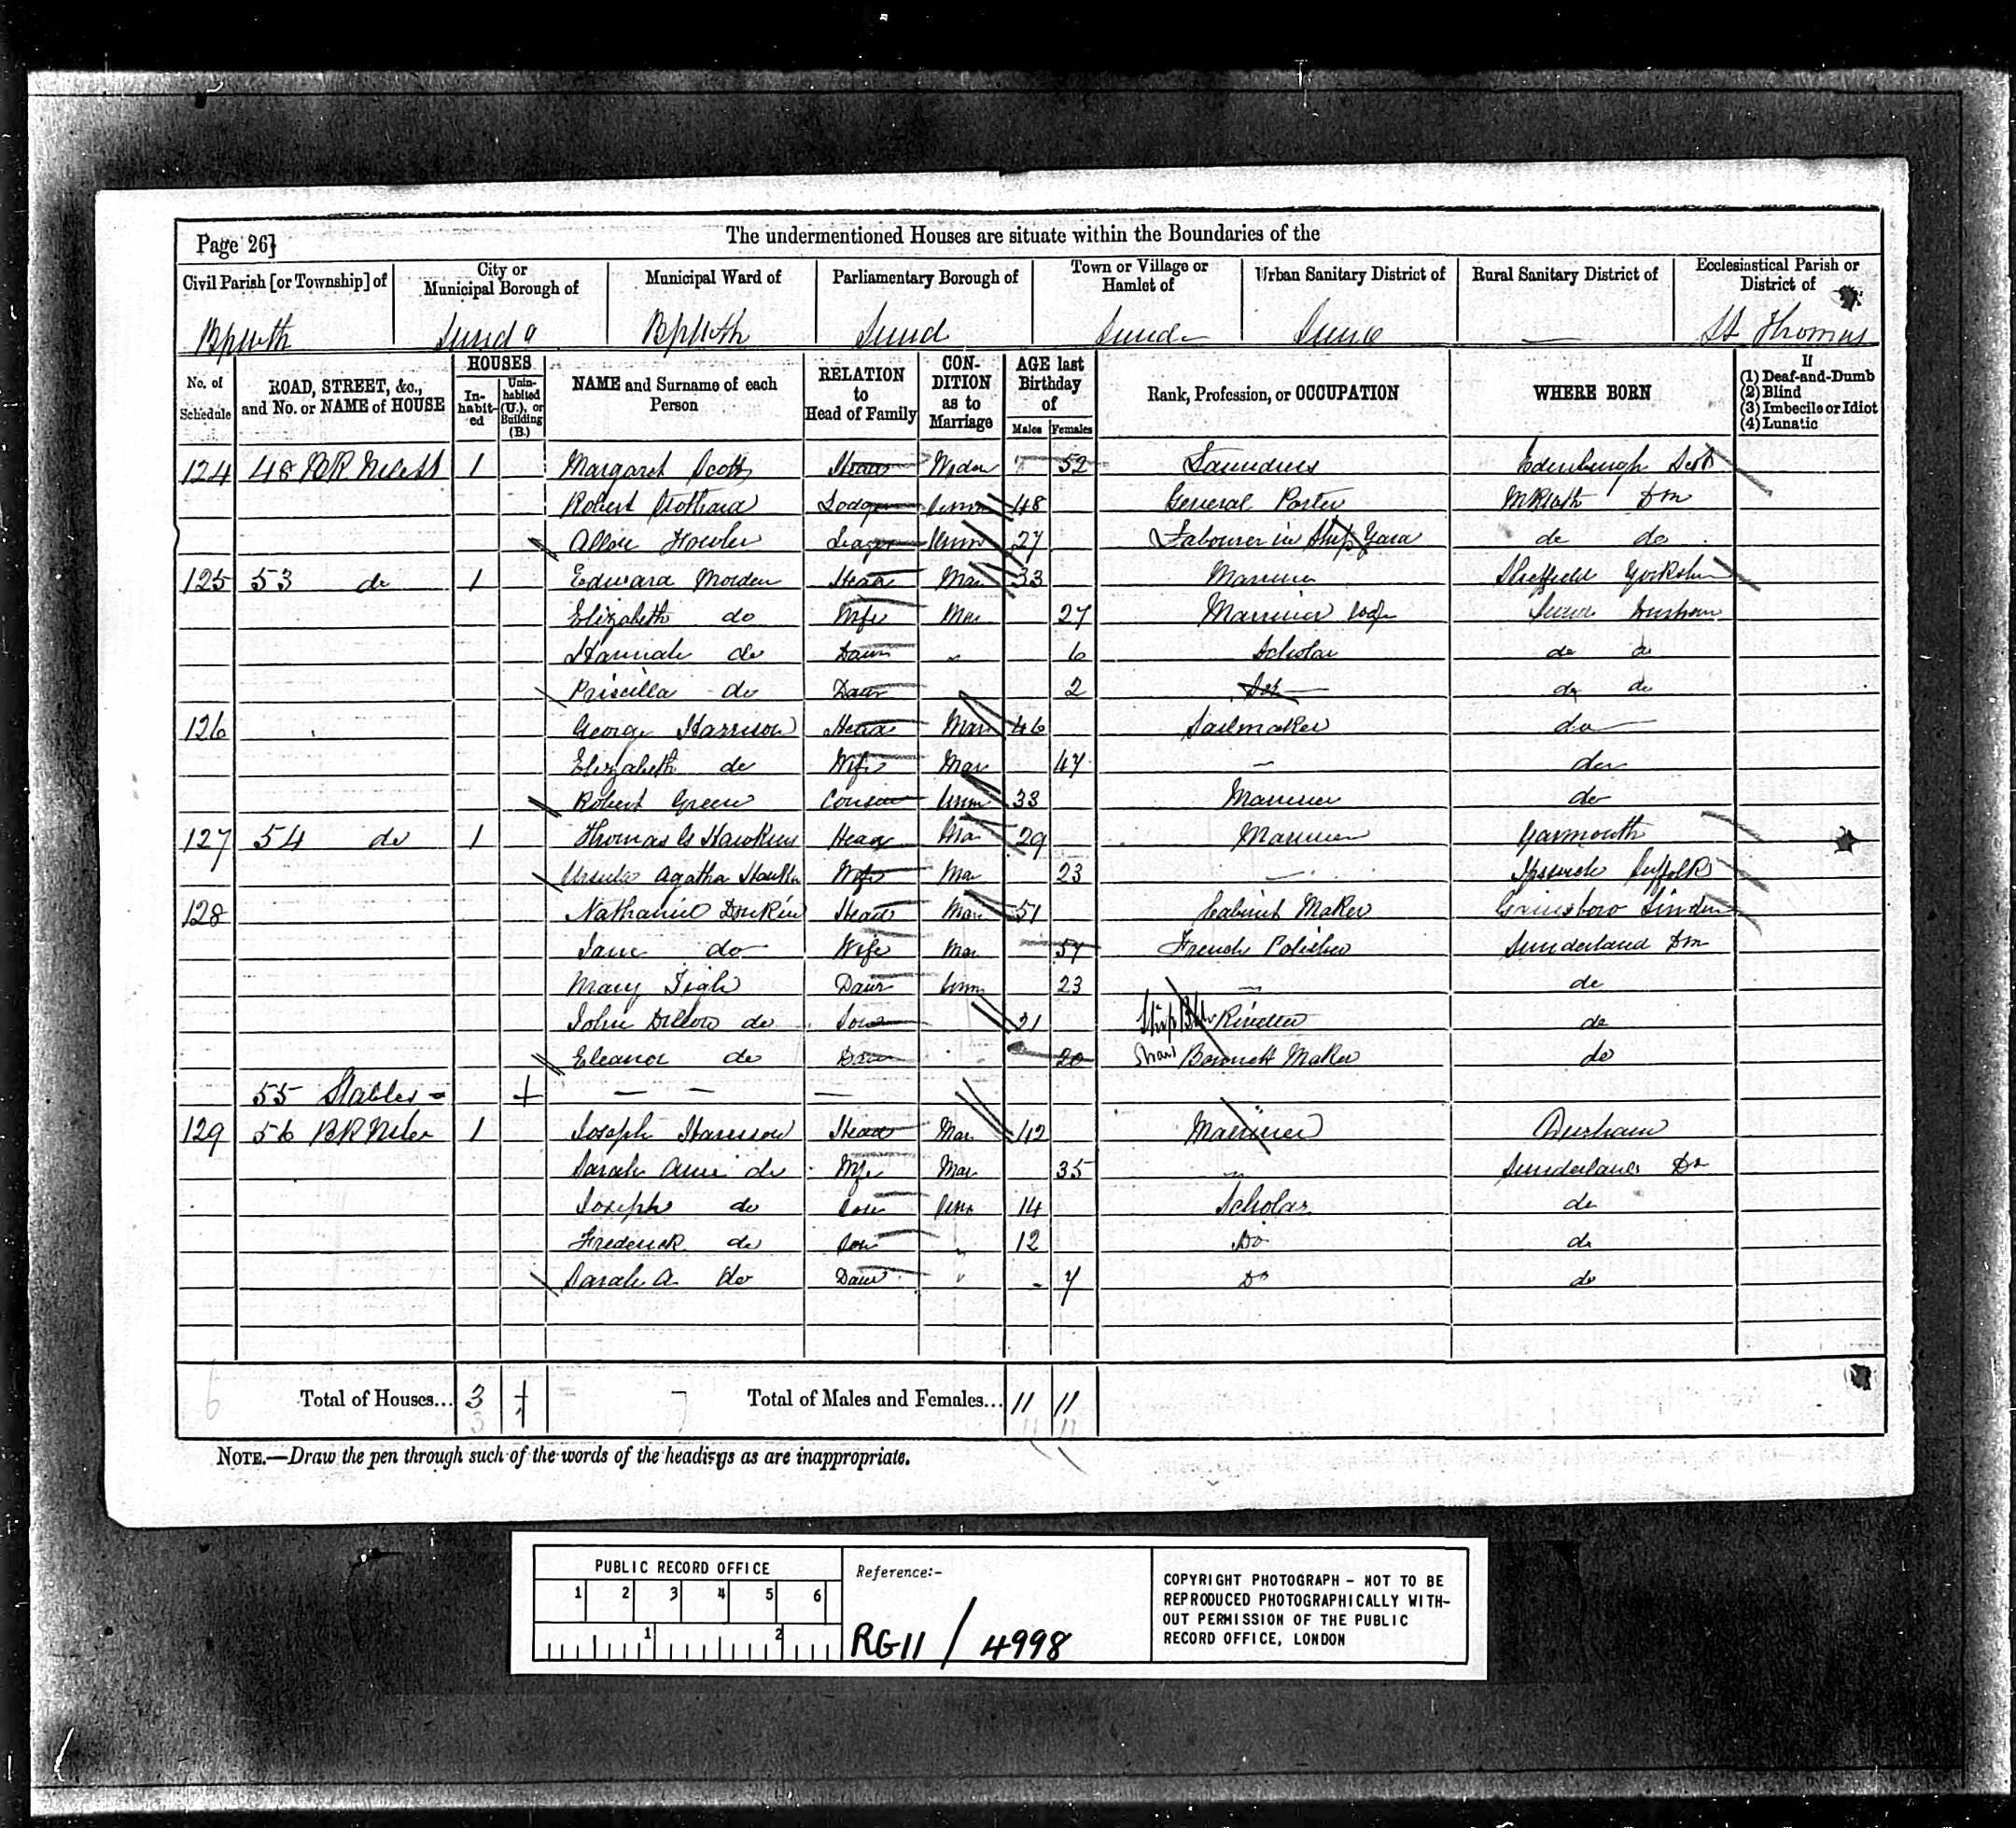 Page 26]
The undermentioned Houses are situate within the Boundaries of the
Civil Parish [or Township] of | City or Municipal Borough of | Municipal Ward of | Parliamentary Borough of | Town or Village or Hamlet of | Urban Sanitary District of | Rural Sanitary District of | Ecclesiastical Parish or District of
Sund | Sund | — | St Thomas
No. of Schedule | ROAD, STREET, &c., and No. or NAME of HOUSE | HOUSES | In-habit-ed | Unin-habited (U.), or Building (B.) | NAME and Surname of each Person | RELATION to Head of Family | CON-DITION as to Marriage | AGE last Birthday of | Males | Females | Rank, Profession, or OCCUPATION | WHERE BORN | If (1) Deaf-and-Dumb (2) Blind (3) Imbecile or Idiot (4) Lunatic
124 48 1 Margaret Scott Head Widow 52 Laundress Edenburgh Scot
Robert Stothard Lodger Unm 48 General Porter Dm
Fowler Unm 27 Labourer in Ship Yard do do
125 53 do 1 Edward Morden Head Mar 33 Mariner Sheffield Yorkshire
Elizabeth do Wife Mar 27 Mariner wife Durham
Hannah do Daur 6 Scholar do do
Priscilla do Daur 2 do do
126 George Harrison Head Mar 46 Sailmaker do
Elizabeth do Wife Mar 47 — do
Robert Green Cousin Unm 33 Mariner do
127 54 do 1 Thomas G Hawkins Head Mar 29 Mariner Yarmouth
Ursula Agatha Wife Mar 23 — Ipswich Suffolk
128 Nathaniel Head Mar 51 Cabinet Maker Gainsboro
Jane do Wife Mar 57 French Polisher Sunderland Dm
Mary Daur Unm 23 — do
John do Son 21 Ship Riveter do
Eleanor do Daur 20 Straw Bonnett Maker do
55 Stables — — —
129 56 1 Joseph Harrison Head Mar 42 Mariner Durham
Sarah Ann do Wife Mar 35 Sunderland Dm
Joseph do Son Unm 14 Scholar do
Frederick do Son " 12 Do do
Sarah A do Daur " 7 Do do
Total of Houses... 3 Total of Males and Females... 11 11
NOTE.—Draw the pen through such of the words of the headings as are inappropriate.
PUBLIC RECORD OFFICE
1 2 3 4 5 6
1 2
Reference:-
RG11 / 4998
COPYRIGHT PHOTOGRAPH - NOT TO BE
REPRODUCED PHOTOGRAPHICALLY WITH-
OUT PERMISSION OF THE PUBLIC
RECORD OFFICE, LONDON